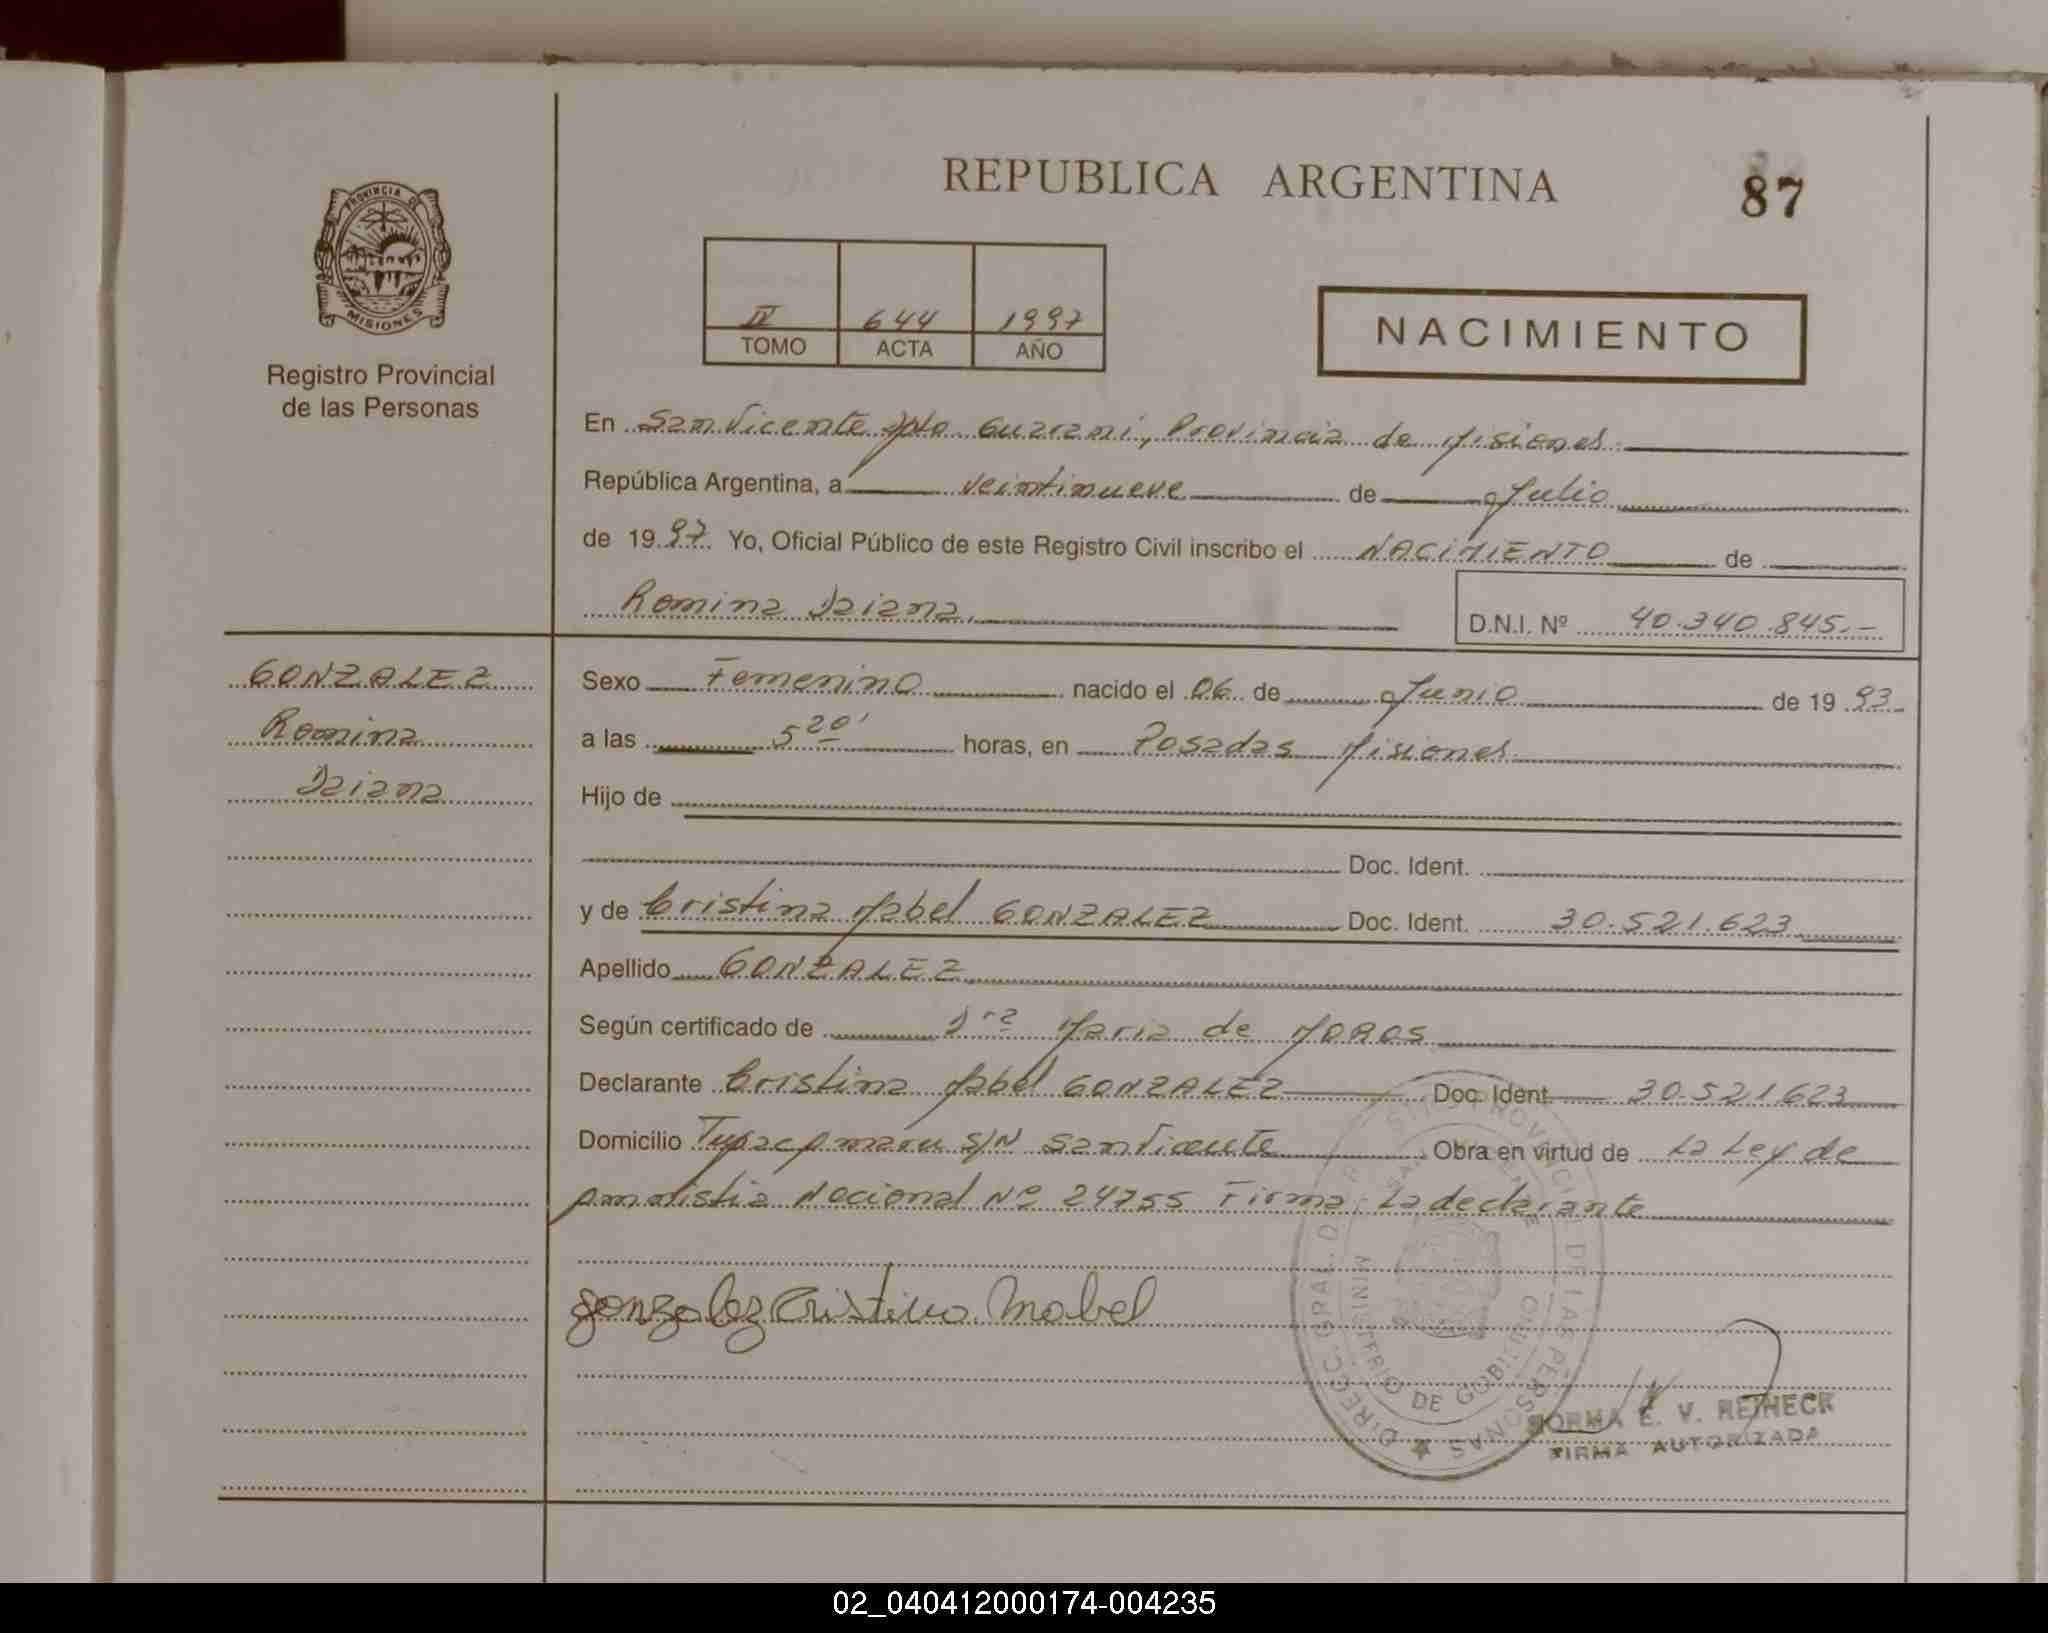 REPUBLICA ARGENTINA
87
PROVINCIA DE
MISIONES
Registro Provincial
de las Personas
IV 644 1997
TOMO ACTA AÑO
NACIMIENTO
En San Vicente Dpto. Guarani, Provincia de Misiones.
República Argentina, a veintinueve de Julio
de 1997 Yo, Oficial Público de este Registro Civil inscribo el NACIMIENTO de
Romina Daiana.
D.N.I. Nº 40.340.845.-
GONZALEZ
Romina
Daiana
Sexo Femenino nacido el 06 de Junio de 1993
a las 5 20' horas, en Posadas Misiones
Hijo de
Doc. Ident.
y de Cristina Mabel GONZALEZ Doc. Ident. 30.521.623
Apellido GONZALEZ
Según certificado de Dra Maria de
Declarante Cristina Mabel GONZALEZ Doc. Ident 30.521.623
Domicilio Tupac Amaru S/N San Vicente Obra en virtud de La Ley de
Amnistia Nacional Nº 24755 Firma: La declarante
Gonzalez Cristina Mabel
DIRECC. GRAL. DEL REGISTRO PROVINCIAL DE LAS PERSONAS
SAN VICENTE
MINISTERIO DE GOBIERNO
NORMA E. V. REINECK
FIRMA AUTORIZADA
02_040412000174-004235